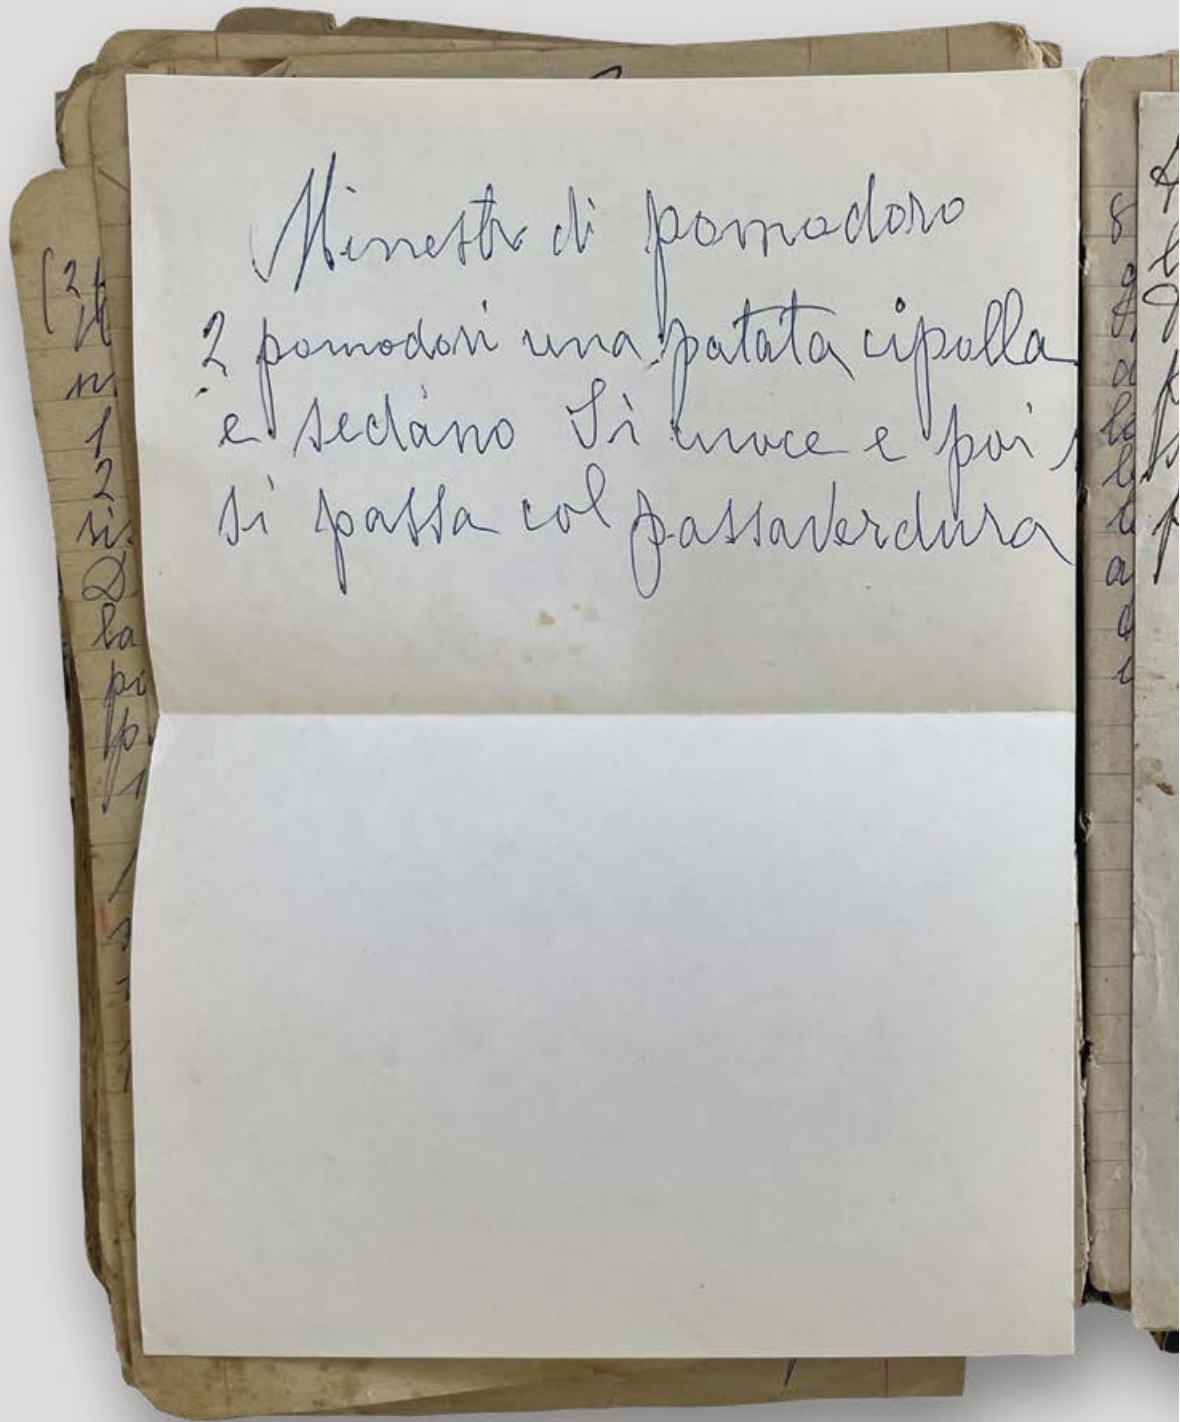 Minestr di pomodoro
2 pomodori una patata cipolla
e sedano Si cuoce e poi
si passa col passaverdura
(2
1
2
si
D
la
8
a